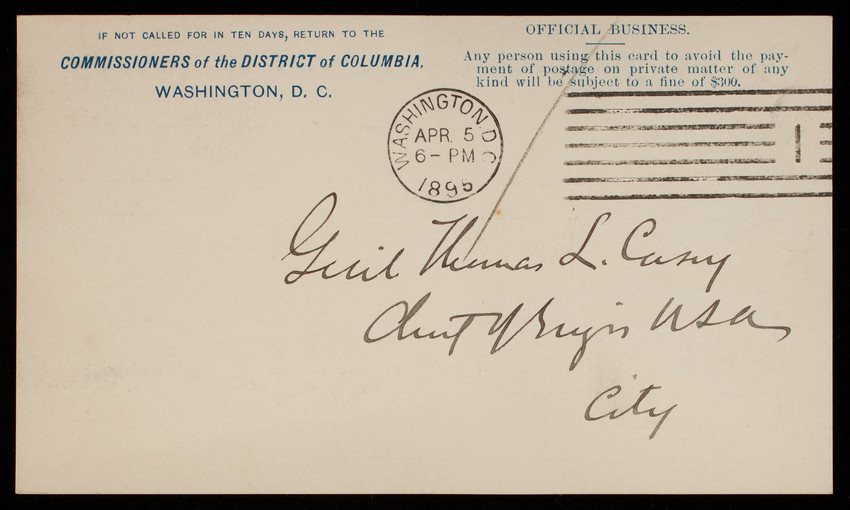 IF NOT CALLED FOR IN TEN DAYS, RETURN TO THE
COMMISSIONERS of the DISTRICT of COLUMBIA,
WASHINGTON, D. C.
OFFICIAL BUSINESS.
Any person using this card to avoid the pay-
ment of postage on private matter of any
kind will be subject to a fine of $300.
WASHINGTON, D.C.
APR. 5
6-PM
1895
1
Genl Thomas L. Casey
Chief of Engrs USA
City